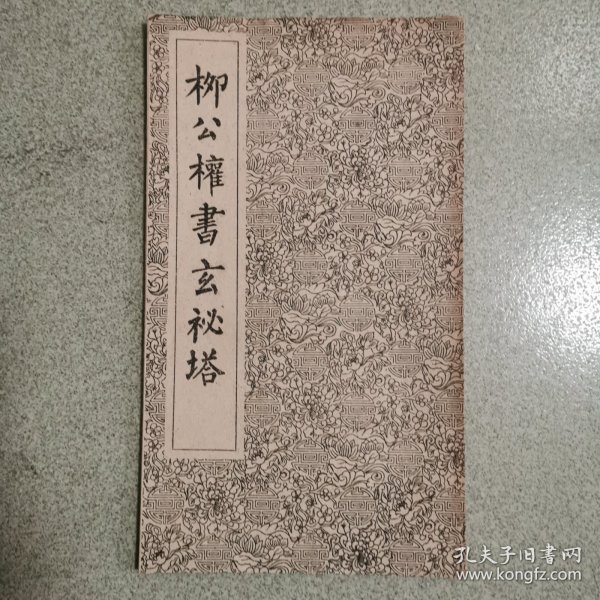 柳公權書玄祕塔
孔夫子旧書网
www.kongfz.com